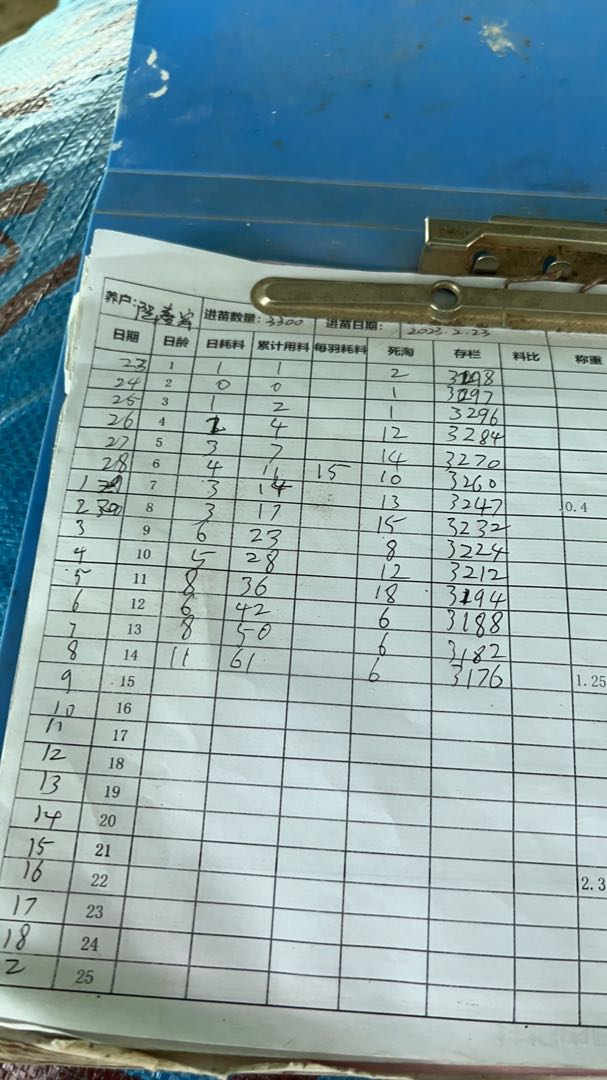 养户: 进苗数量: 3300 进苗日期: 2023.2.23
日期 日龄 日耗料 累计用料 每羽耗料 死淘 存栏 料比 称重
23 1 1 1 2 3298
24 2 0 0 1 3297
25 3 1 2 1 3296
26 4 2 4 12 3284
27 5 3 7 14 3270
28 6 4 11 15 10 3260
1 7 3 14 13 3247 0.4
2 8 3 17 15 3232
3 9 6 23 8 3224
4 10 5 28 12 3212
5 11 8 36 18 3194
6 12 6 42 6 3188
7 13 8 50 6 3182
8 14 11 61 6 3176
9 15 1.25
10 16
11 17
12 18
13 19
14 20
15 21
16 22 2.3
17 23
18 24
2 25